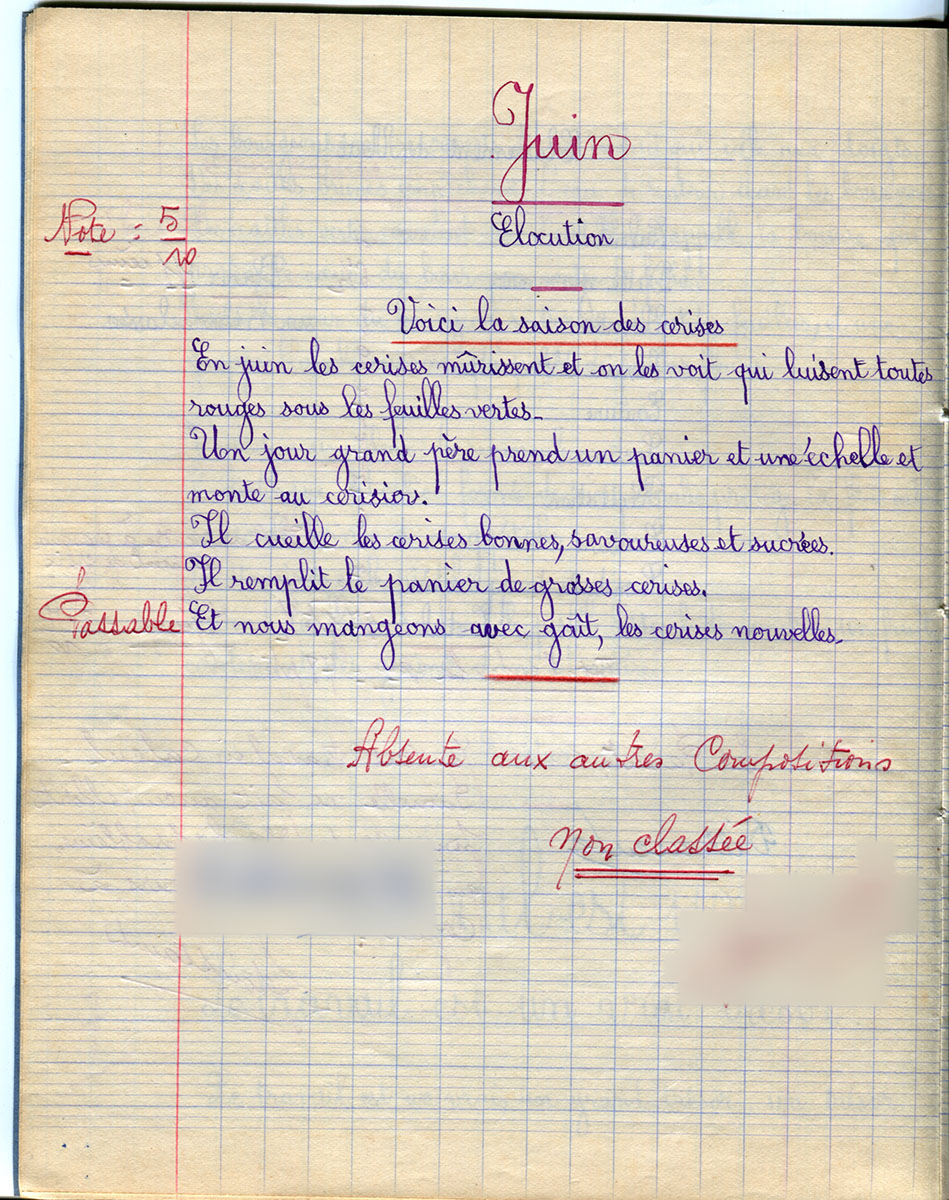 Juin
Note : 5/10
Elocution
Voici la saison des cerises
En juin les cerises mûrissent et on les voit qui luisent toutes
rouges sous les feuilles vertes.
Un jour grand père prend un panier et une échelle et
monte au cerisier.
Il cueille les cerises bonnes, savoureuses et sucrées.
Il remplit le panier de grosses cerises.
Passable
Et nous mangeons avec goût, les cerises nouvelles.
Absente aux autres Compositions
non classée